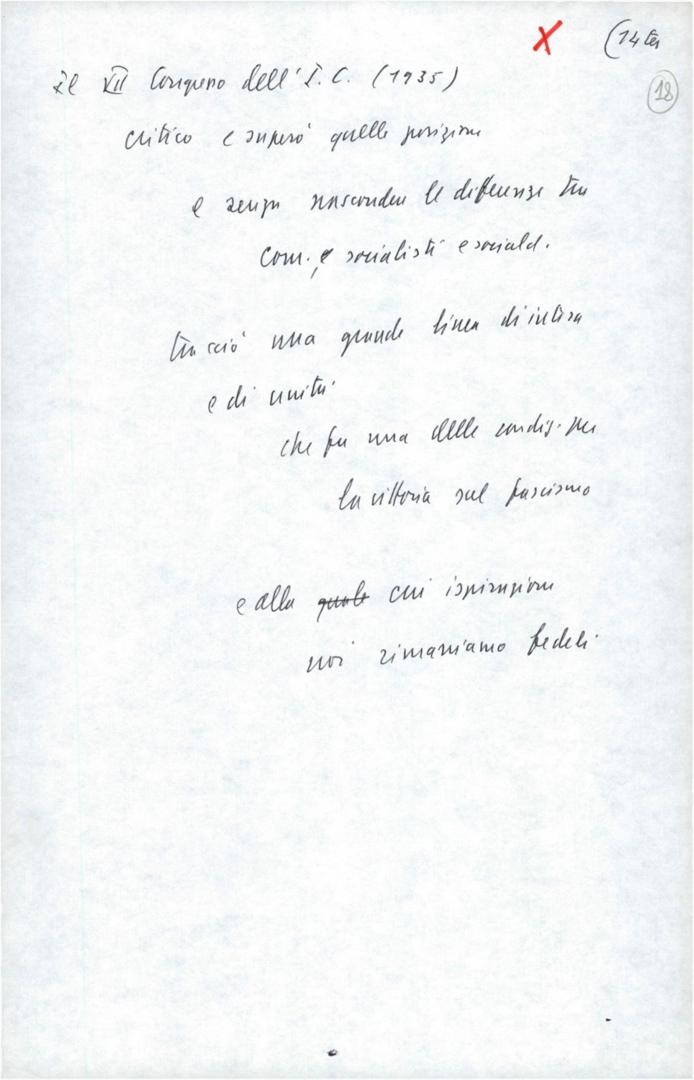 X (14 ter
18
Il VII Congresso dell'I.C. (1935)
criticò e superò quelle posizioni
e senza nascondere le differenze tra
com. e socialisti e sociald.
tracciò una grande linea di intesa
e di unità
che fu una delle condiz. per
la vittoria sul fascismo
e alla quale cui ispirazione
noi rimaniamo fedeli